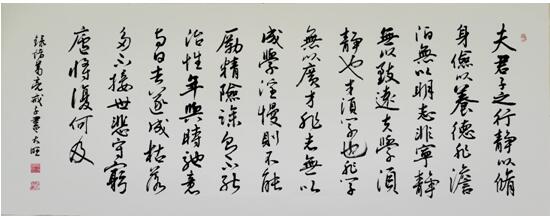 夫君子之行静以脩
身儉以養德非澹
泊無以明志非寧静
無以致遠夫學須
静也才須学也非学
無以廣才非志無以
成學淫慢則不能
勵精險躁則不能
治性年與時馳意
與日去遂成枯落
多不接世悲守窮
廬將復何及
錄諸葛亮戒子書大旺